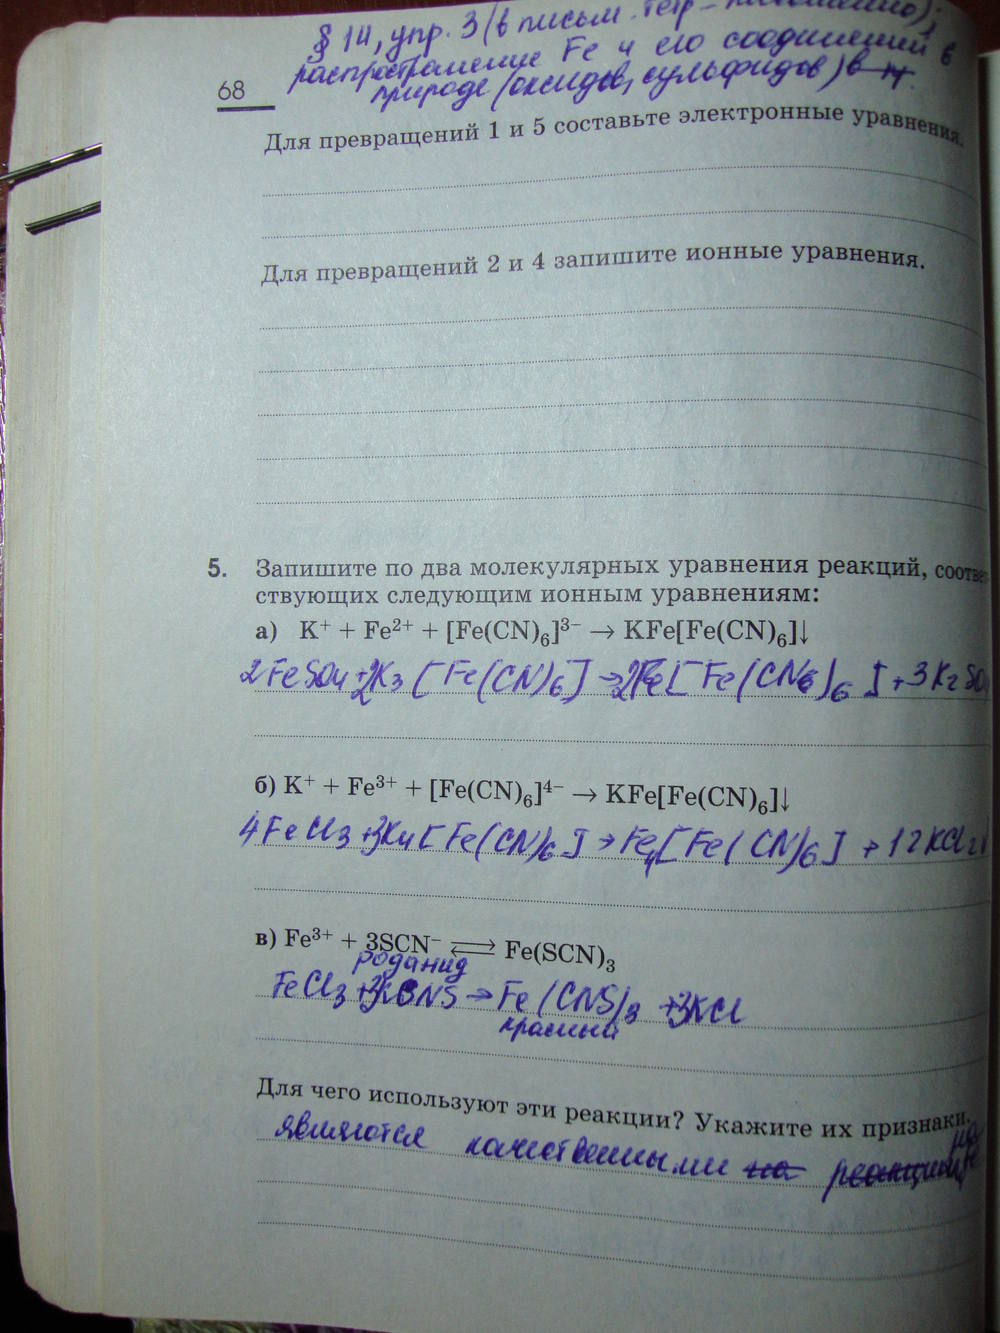 § 14, упр. 3 (в письм. тетр - письменно);
распространение Fe и его соединений в
природе (оксидов, сульфидов)
68
Для превращений 1 и 5 составьте электронные уравнения.
Для превращений 2 и 4 запишите ионные уравнения.
5. Запишите по два молекулярных уравнения реакций, соответ-
ствующих следующим ионным уравнениям:
а) K⁺ + Fe²⁺ + [Fe(CN)₆]³⁻ → KFe[Fe(CN)₆]↓
2FeSO₄+2K₃[Fe(CN)₆] → [Fe(CN)₆]+3K₂SO₄
б) K⁺ + Fe³⁺ + [Fe(CN)₆]⁴⁻ → KFe[Fe(CN)₆]↓
4FeCl₃+3K₄[Fe(CN)₆] → Fe₄[Fe(CN)₆] + 12KCl
в) Fe³⁺ + 3SCN⁻ ⇄ Fe(SCN)₃
роданид
FeCl₃+3KCNS → Fe(CNS)₃ +3KCl
красный
Для чего используют эти реакции? Укажите их признаки.
являются качественными на реакциями